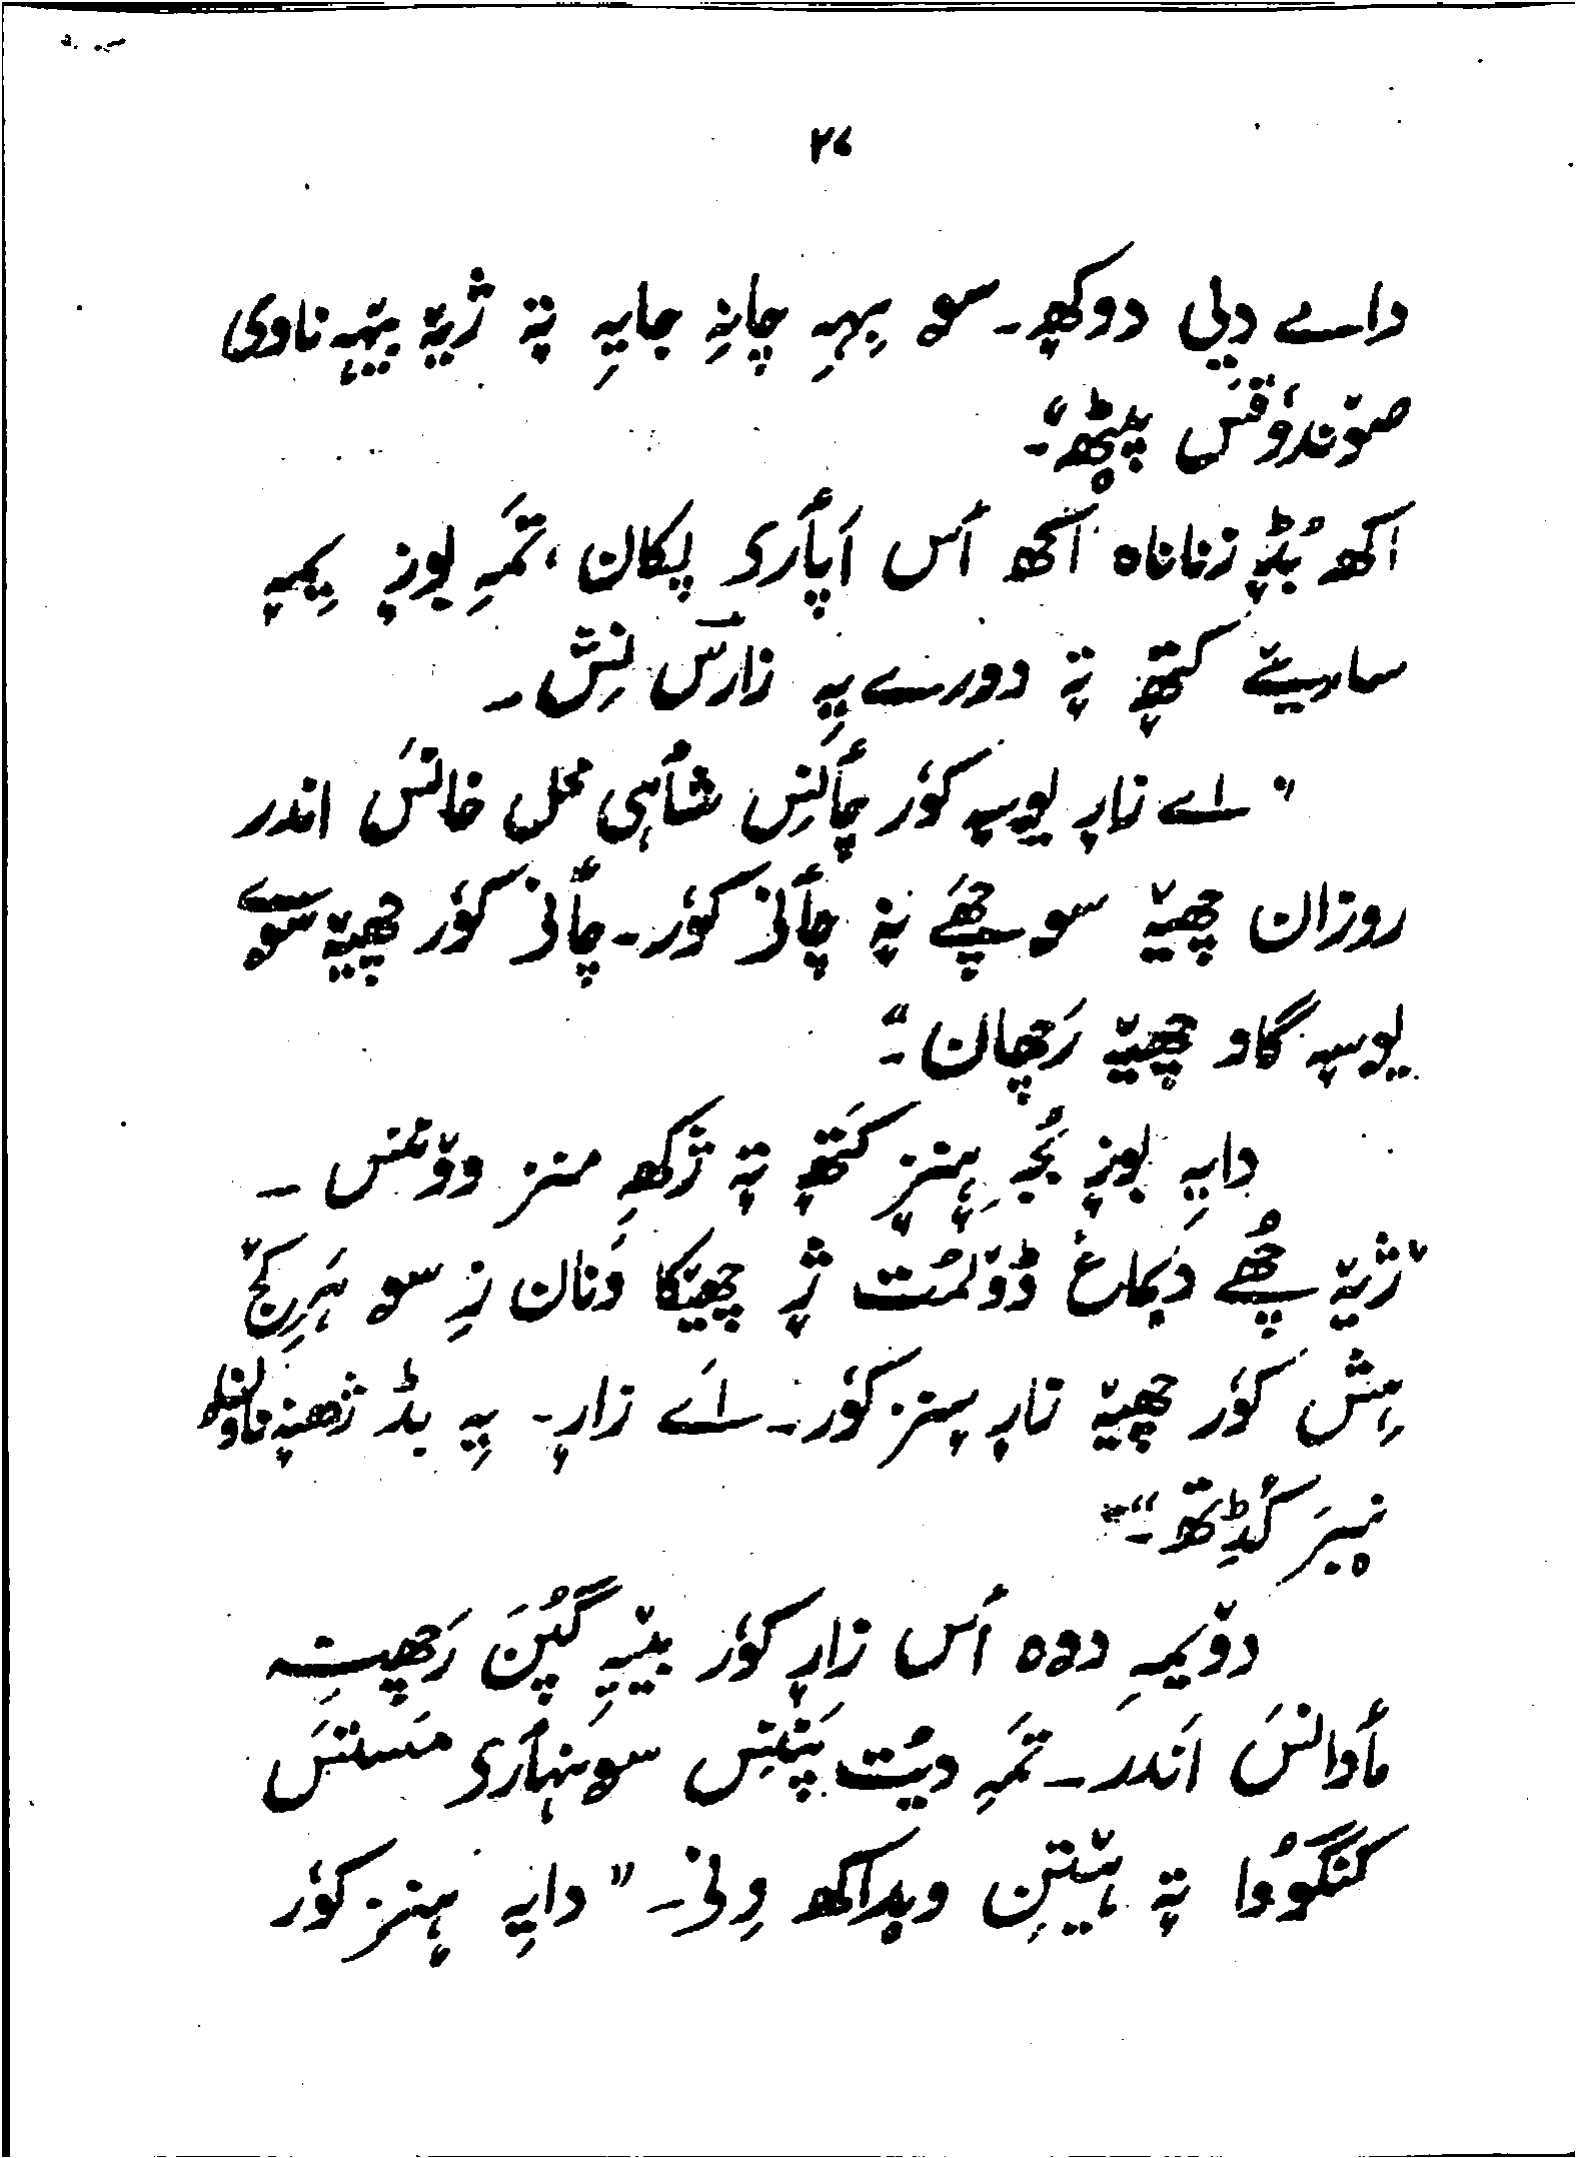 ۲۷
داے دِلی دوکھ۔ سو بِہہِ چانہِ جایہِ تہٕ ژیہٚ بیٚہہ ناوی
صوٚندوٗقَس پیٚٹھ"۔
اکھ بُڈٕ زناناہ اکھ أس اَپأری پکان، تمَہِ بوزٕ یِمہٕ
سارِیے کتھٕ تہٕ دورے یِہ زارَس نِش۔
"اے زارٕ یوسہٕ کوٗر چأنِس شأہی محل خانَس اندر
روزان چھیہٚ سو چھَے نہٕ چأنۍ کوٗر۔ چأنۍ کوٗر چھیہٚ سۄے
یوسہٕ گاو چھیہٚ رَچھان"۔
دایہِ بوزٕ بُجہِ ہِنزٕ کتھٕ تہٕ ژکھِ منز ووٚننس ۔
"ژیہٚ چھُے دِماغ ڈوٚلمُت ژٕ چھیٚکا وَنان زِ سو ہَرِکٔچ
ہِش کوٗر چھیہٚ زارٕ سٕنز کوٗر۔ اَے زارٕ۔ یِہ بڈ ژھنہٕ ناوُنکھ
نیٚبرَ کٔڈِتھ۔"
دوٚیمہِ دوہ أس زارٕ کوٗر بیٚیہِ گُپَن رَچھنہِ
مأدانَس اَندر۔ تمَہِ دیُت پَننِس سونہأری مَستَس
کنگوُوا تہٕ ہیٚتِن ویداکھ وِنۍ۔ "دایہِ ہنز کوٗر